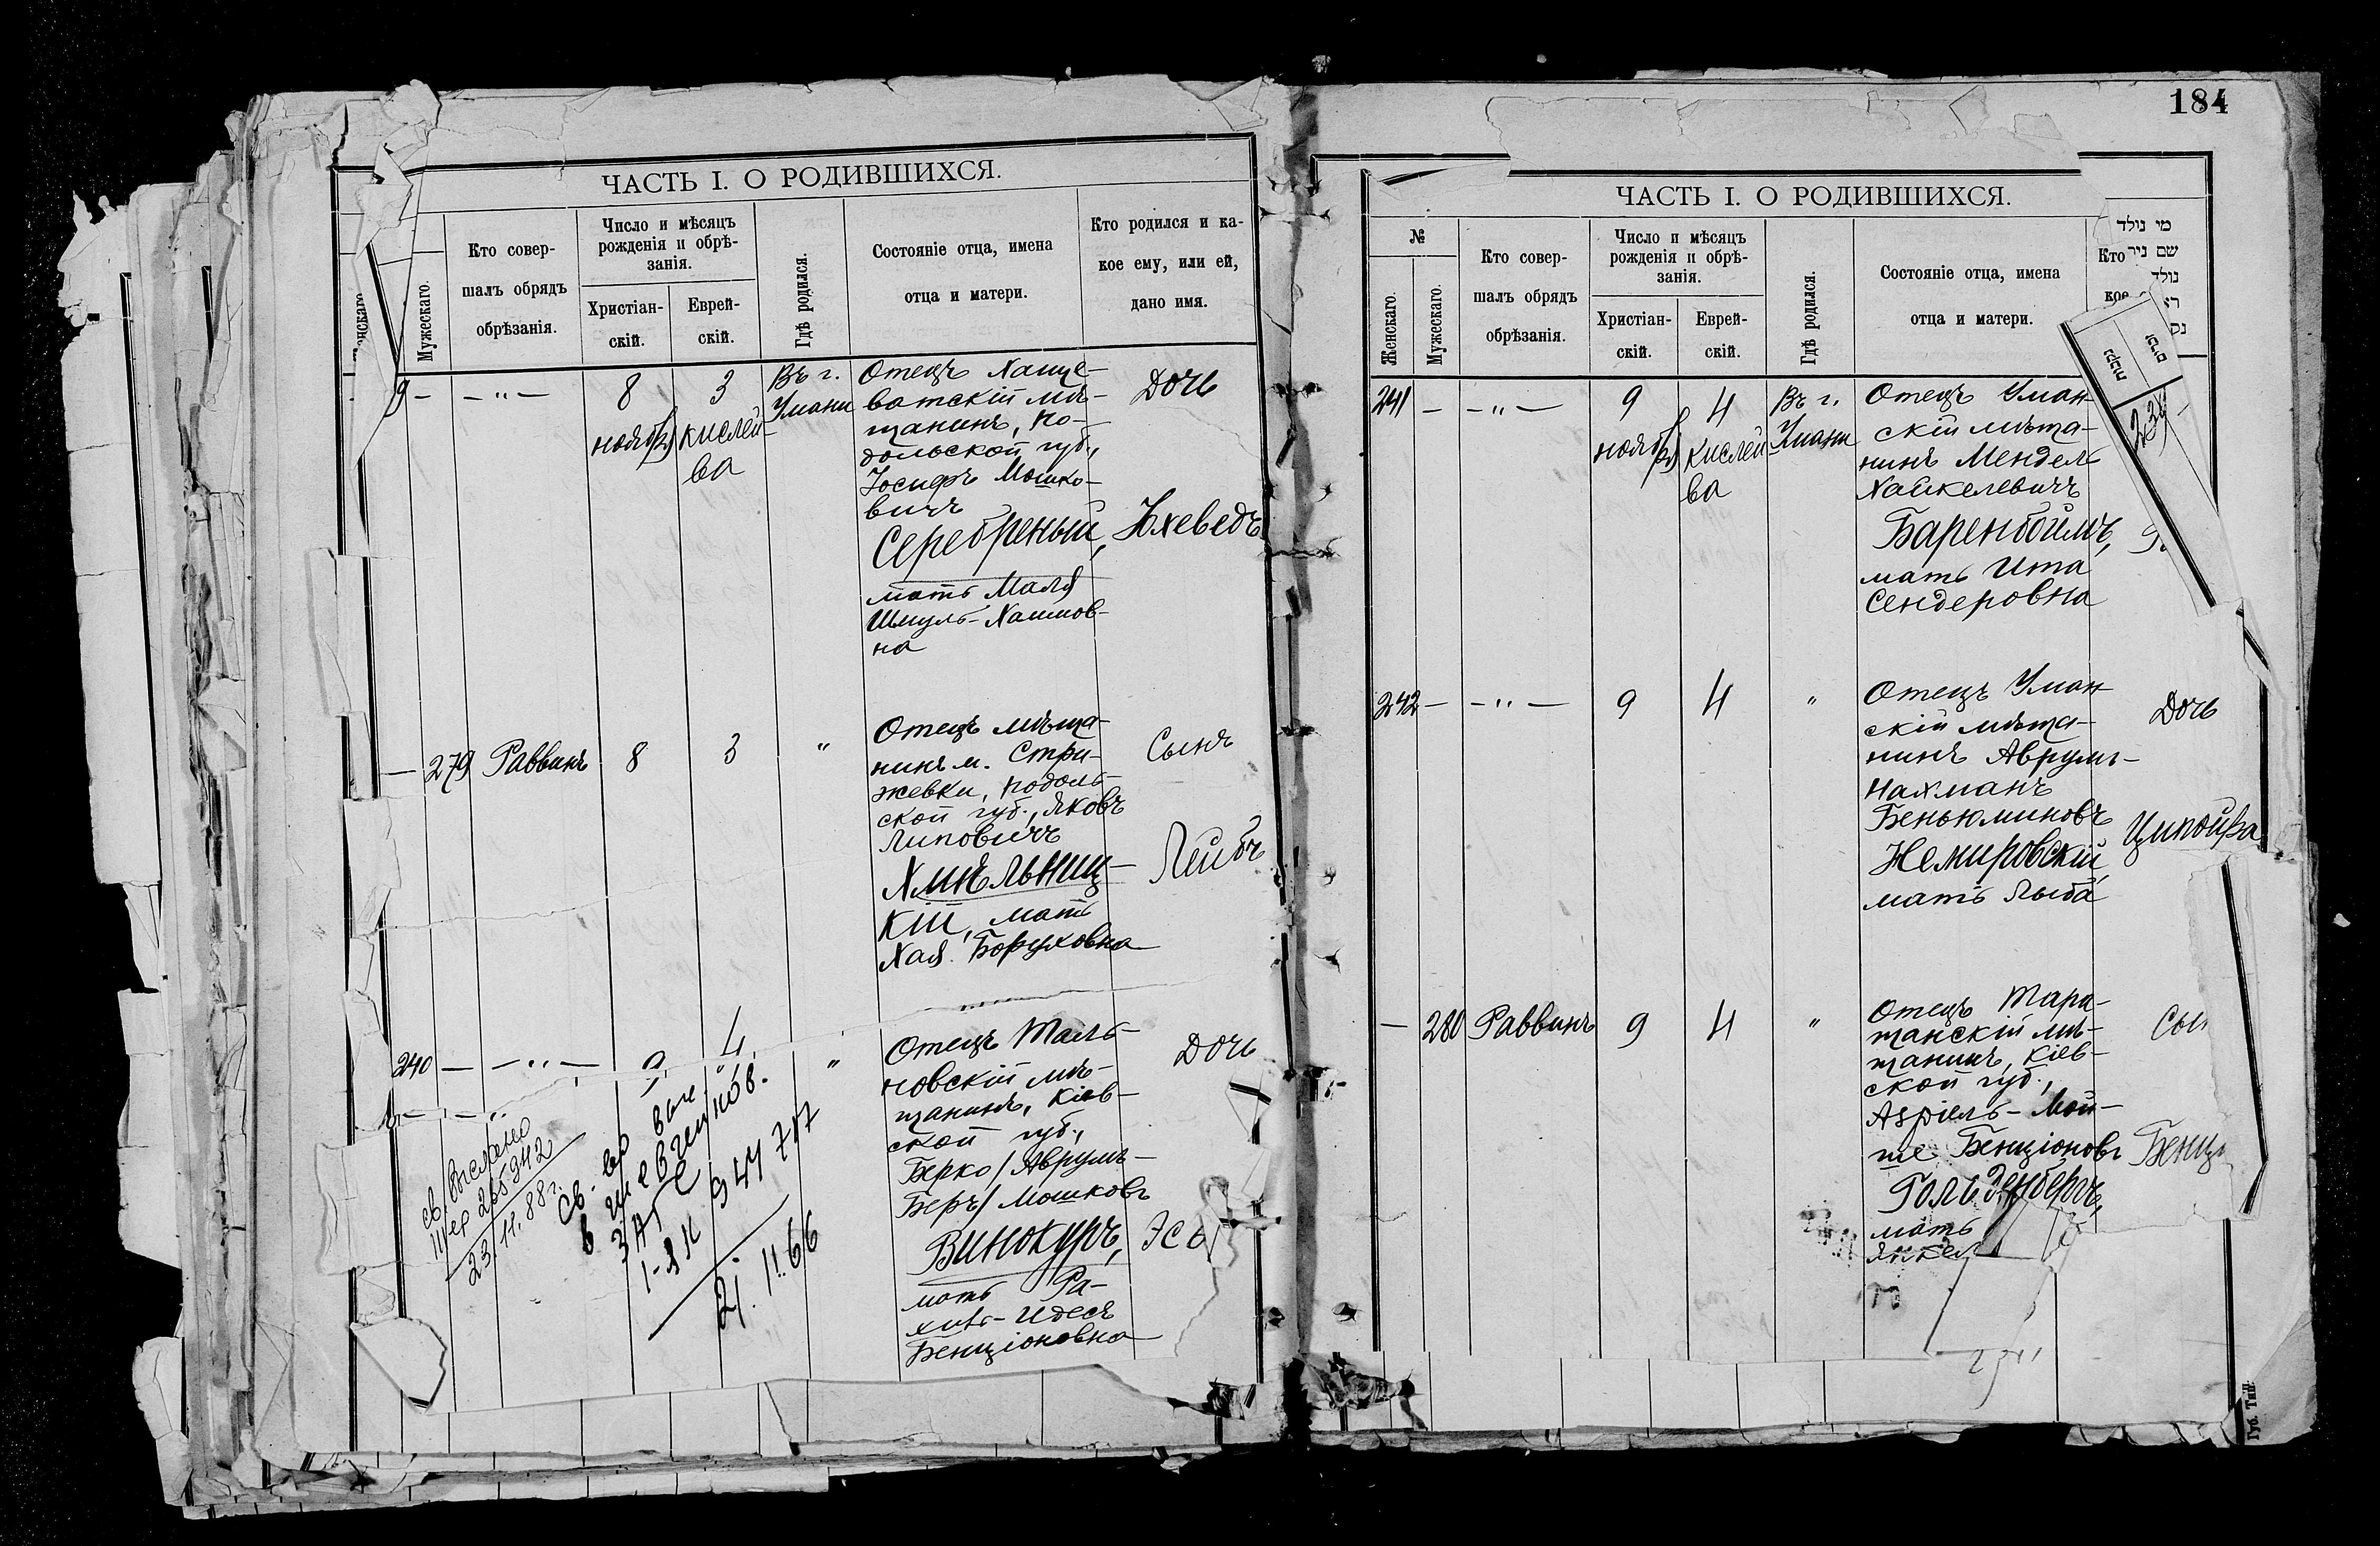 184
ЧАСТЬ I. О РОДИВШИХСЯ.
Мужескаго.
Кто совер-
шалъ обрядъ
обрѣзанія.
Число и мѣсяцъ
рожденія и обрѣ-
занія.
Христіан-
скій.
Еврей-
скій.
Гдѣ родился.
Состояніе отца, имена
отца и матери.
Кто родился и ка-
кое ему, или ей,
дано имя.
9 — — " —
8
ноября
3
кислей-
ва
Въ г.
Умани
Отецъ Хаще-
ватскій мѣ-
щанинъ, По-
дольской губ.,
Іосифъ Мошко-
вичъ
Серебреный,
мать Маля
Шмуль-Хаимов-
на
Дочь
Юхеведъ
— 279 Раввинъ 8 3 "
Отецъ мѣща-
нинъ м. Стри-
жевки, Подоль-
ской губ., Яковъ
Липовичъ
Хмѣльниц-
кій, мать
Хая Боруховна
Сынъ
Лейбъ
240 — — " — 9 4 "
Отецъ Таль-
новскій мѣ-
щанинъ, Кіев-
ской губ.,
Берко /Аврумъ-
Беръ/ Мошковъ
Винокуръ,
мать Ра-
хиль-Идеся
Бенціоновна
Дочь
Эс
св. выслано
23/11.88г.
21.II.66
ЧАСТЬ I. О РОДИВШИХСЯ.
№
Женскаго.
Мужескаго.
Кто совер-
шалъ обрядъ
обрѣзанія.
Число и мѣсяцъ
рожденія и обрѣ-
занія.
Христіан-
скій.
Еврей-
скій.
Гдѣ родился.
Состояніе отца, имена
отца и матери.
Кто
кое
מי נולד
שם
נולד
זכרים
נקבות
239
241 — — " —
9
ноября
4
кислей
ва
Въ г.
Умани
Отецъ Уман-
скій мѣща-
нинъ Мендель
Хайкелевичъ
Баренбоймъ,
мать Ита
Сендеровна
242 — — " — 9 4 "
Отецъ Уман-
скій мѣща-
нинъ Аврумъ-
Нахманъ
Беньюминовъ
Немировскій,
мать Лыба
Дочь
Ципойра
— 280 Раввинъ 9 4 "
Отецъ Тара-
щанскій мѣ-
щанинъ, Кіев-
ской губ.,
Азріель-Мой-
ше Бенціоновъ
Гольденбергъ,
мать
Сы
Бенці
Губ. Тип.